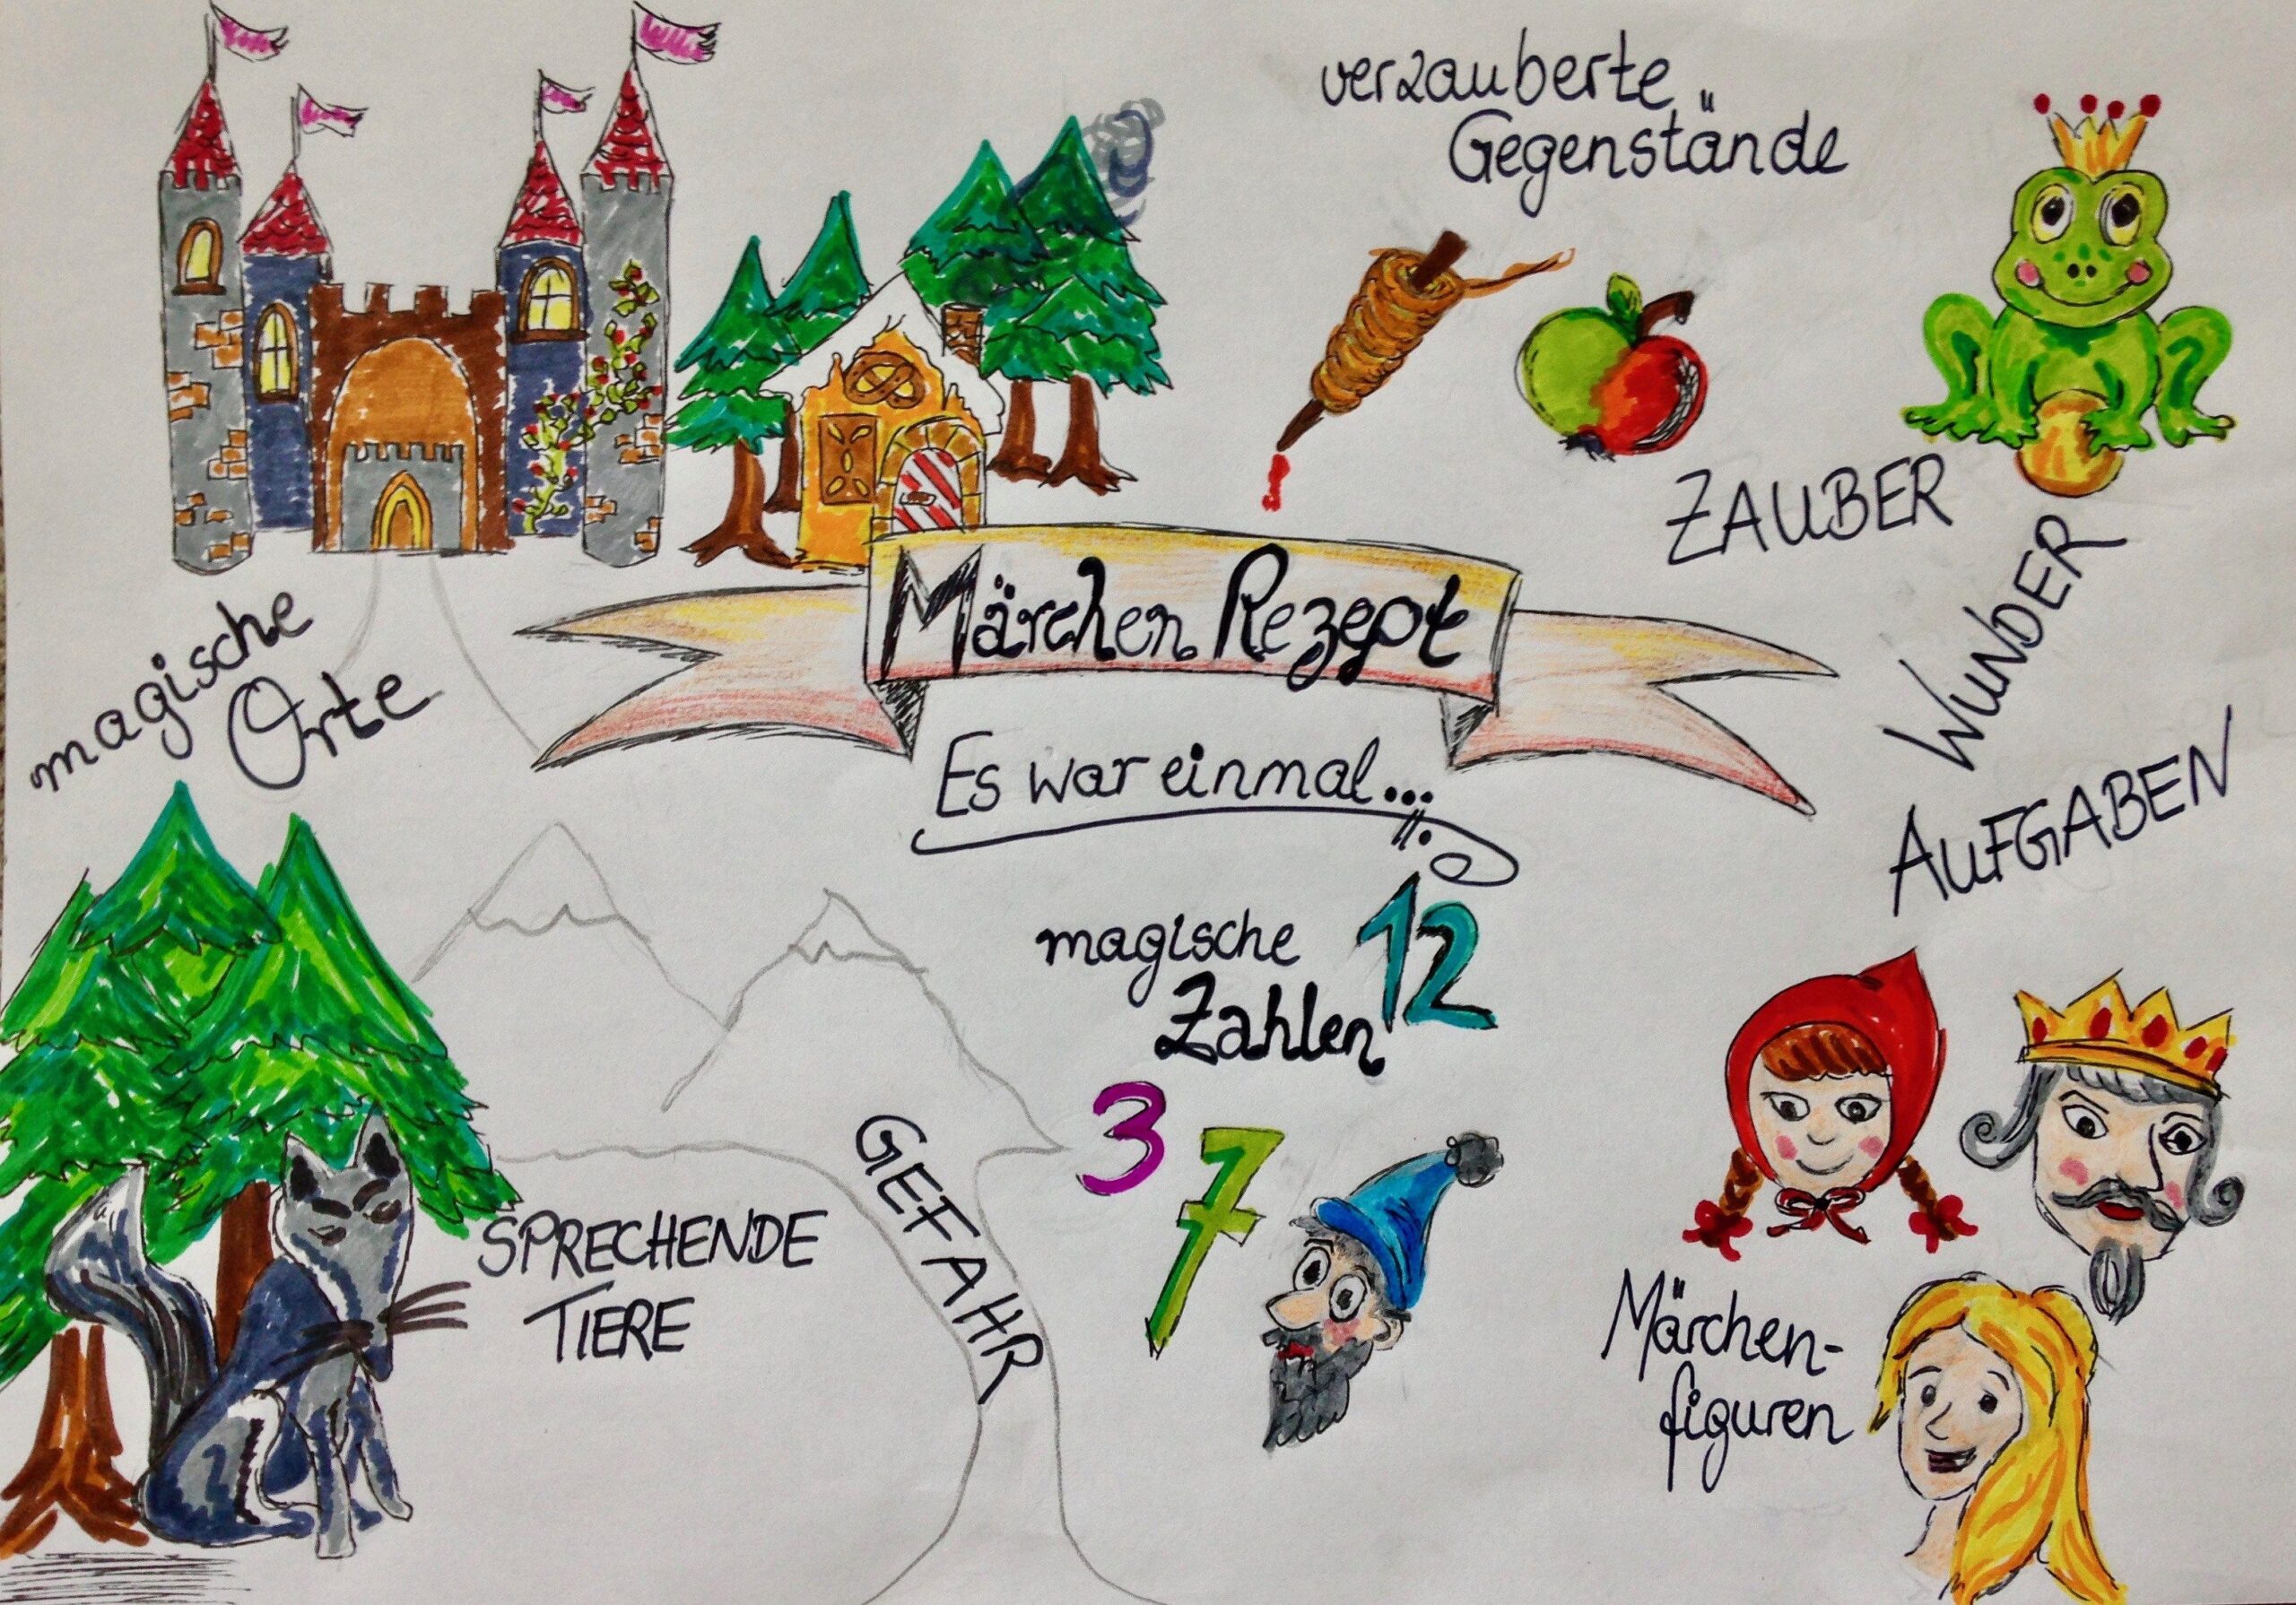 verzauberte
Gegenstände
ZAUBER
WUNDER
AUFGABEN
Märchen Rezept
Es war einmal...
magische
Orte
magische
Zahlen
12
3
7
GEFAHR
SPRECHENDE
TIERE
Märchen-
figuren